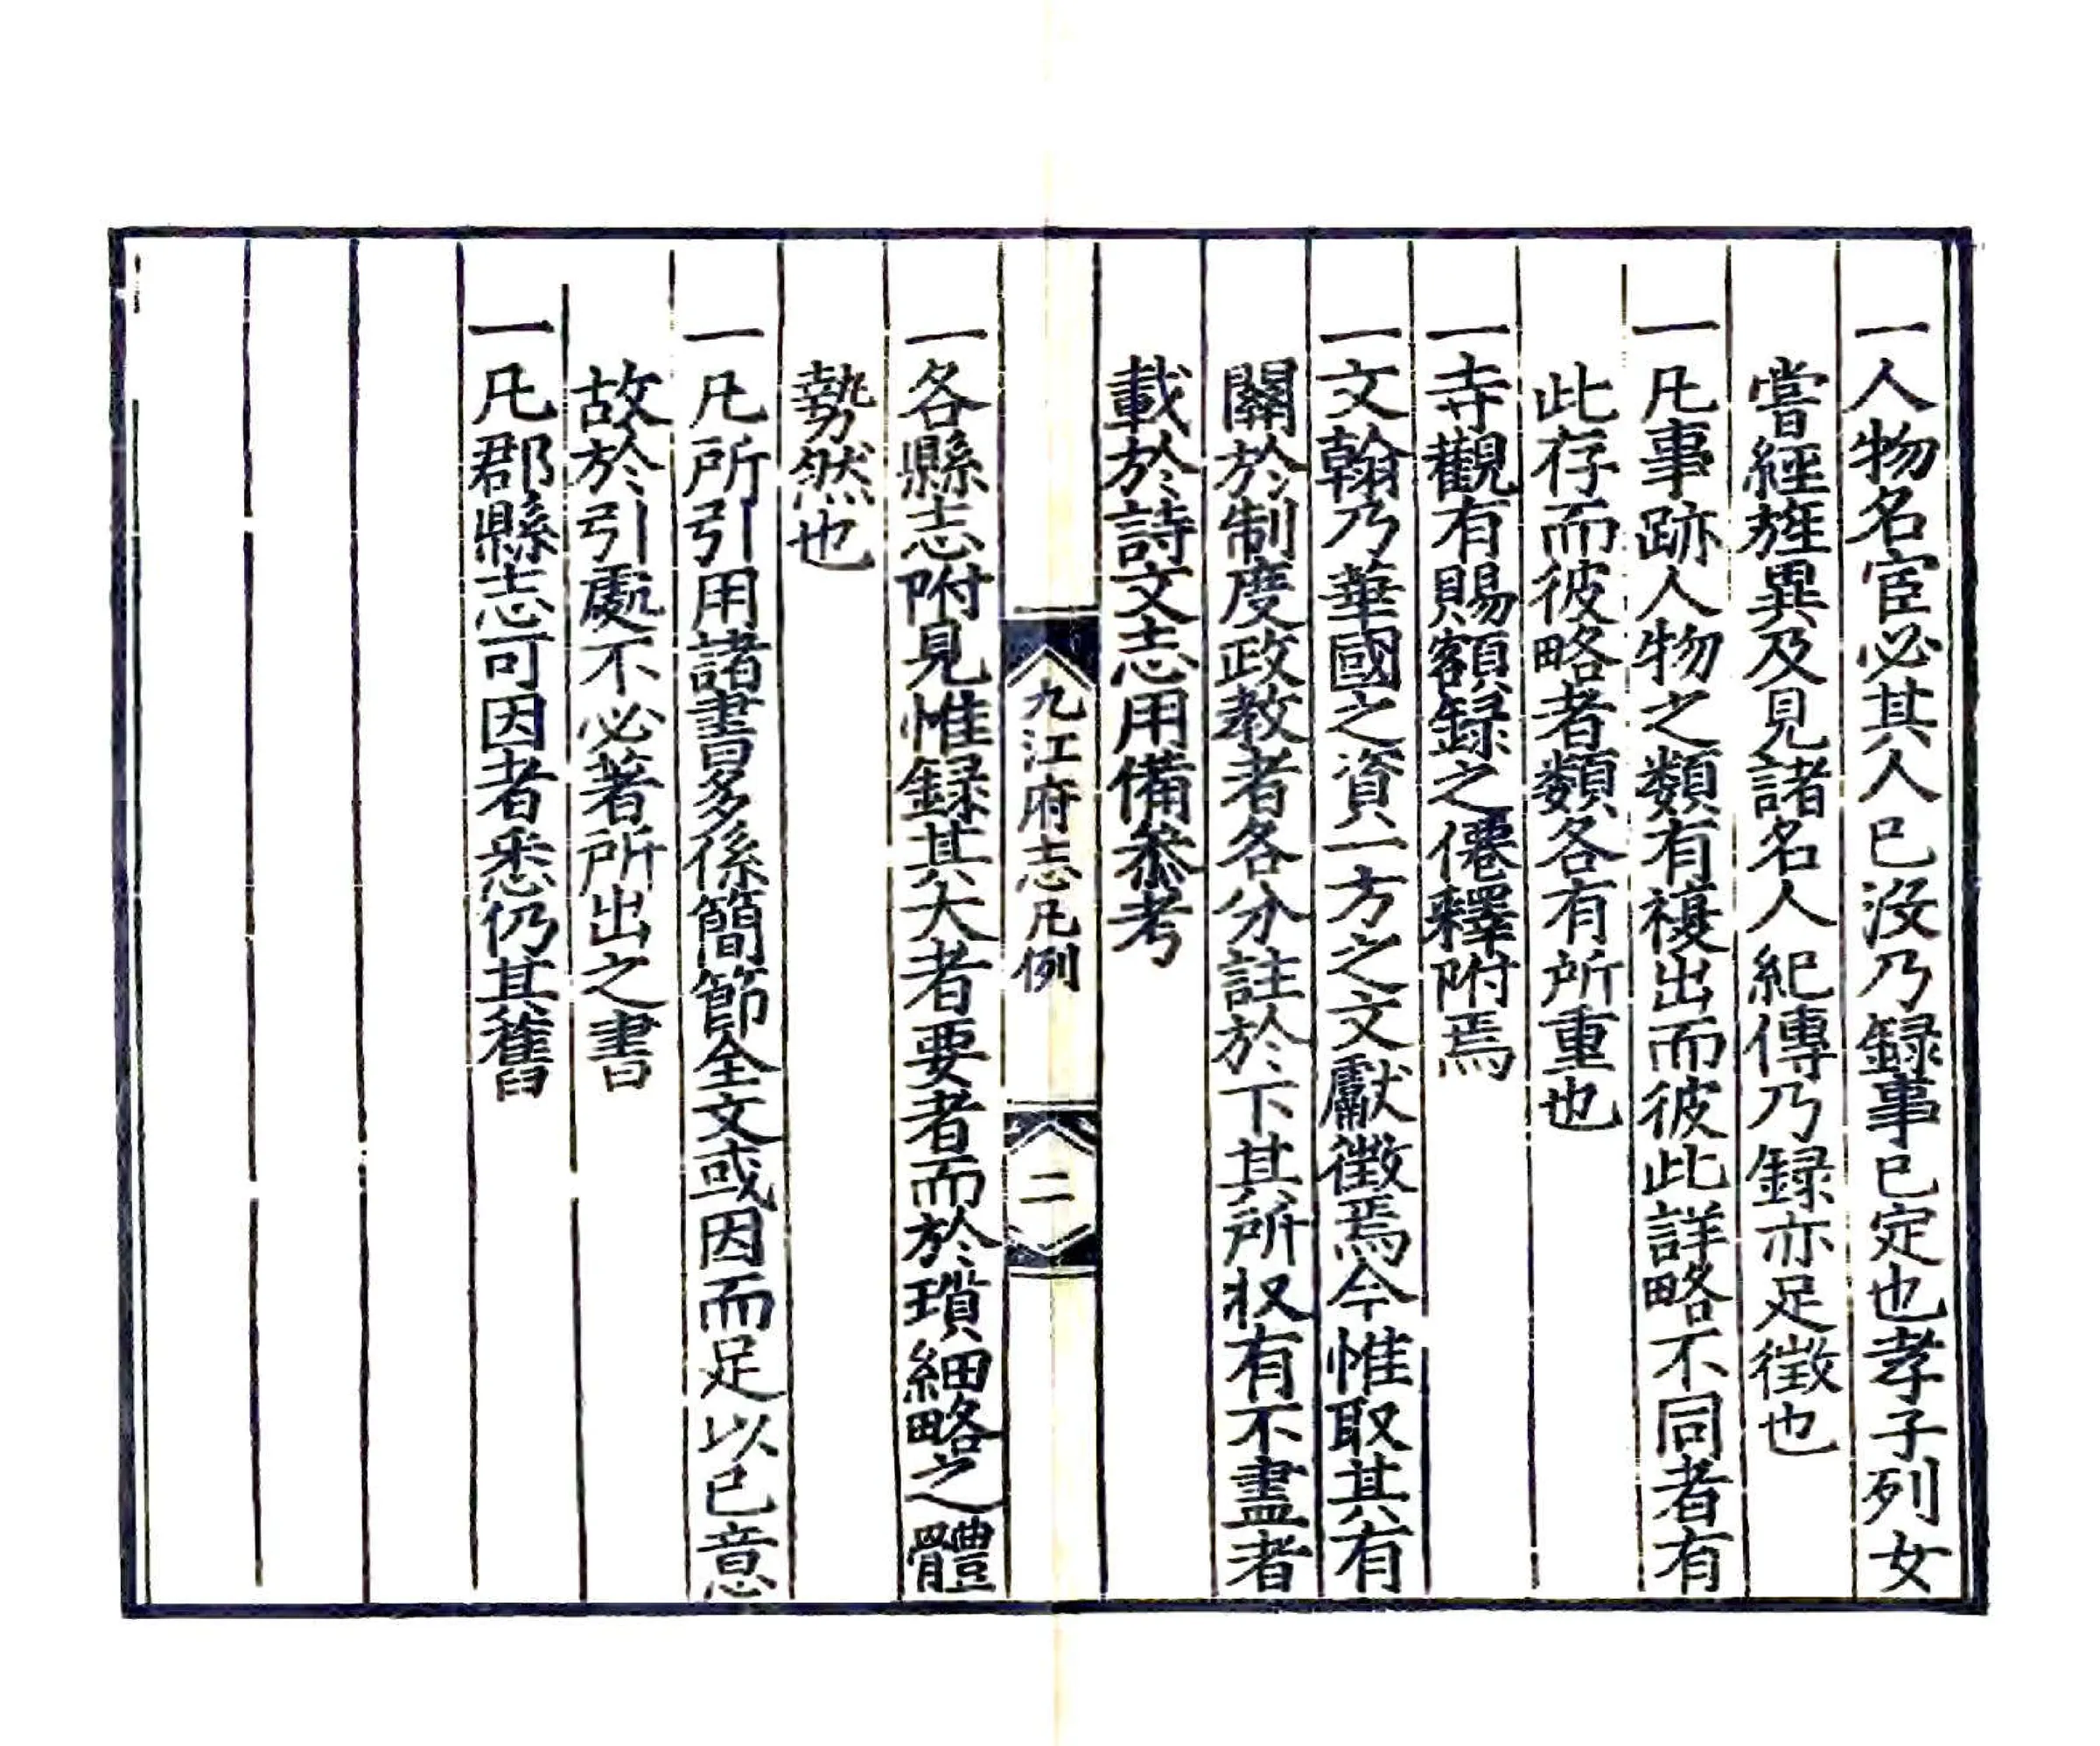 一人物名宦必其人已沒乃錄事已定也孝子列女
嘗經旌異及見諸名人紀傳乃錄亦足徵也
一凡事跡人物之類有複出而彼此詳略不同者有
此存而彼略者類各有所重也
一寺觀有賜額錄之僊釋附焉
一文翰乃華國之資一方之文獻徵焉今惟取其有
關於制度政教者各分註於下其所收有不盡者
載於詩文志用備參考
九江府志凡例
二
一各縣志附見惟錄其大者要者而於瑣細略之體
勢然也
一凡所引用諸書多係簡節全文或因而足以已意
故於引處不必著所出之書
一凡郡縣志可因者悉仍其舊